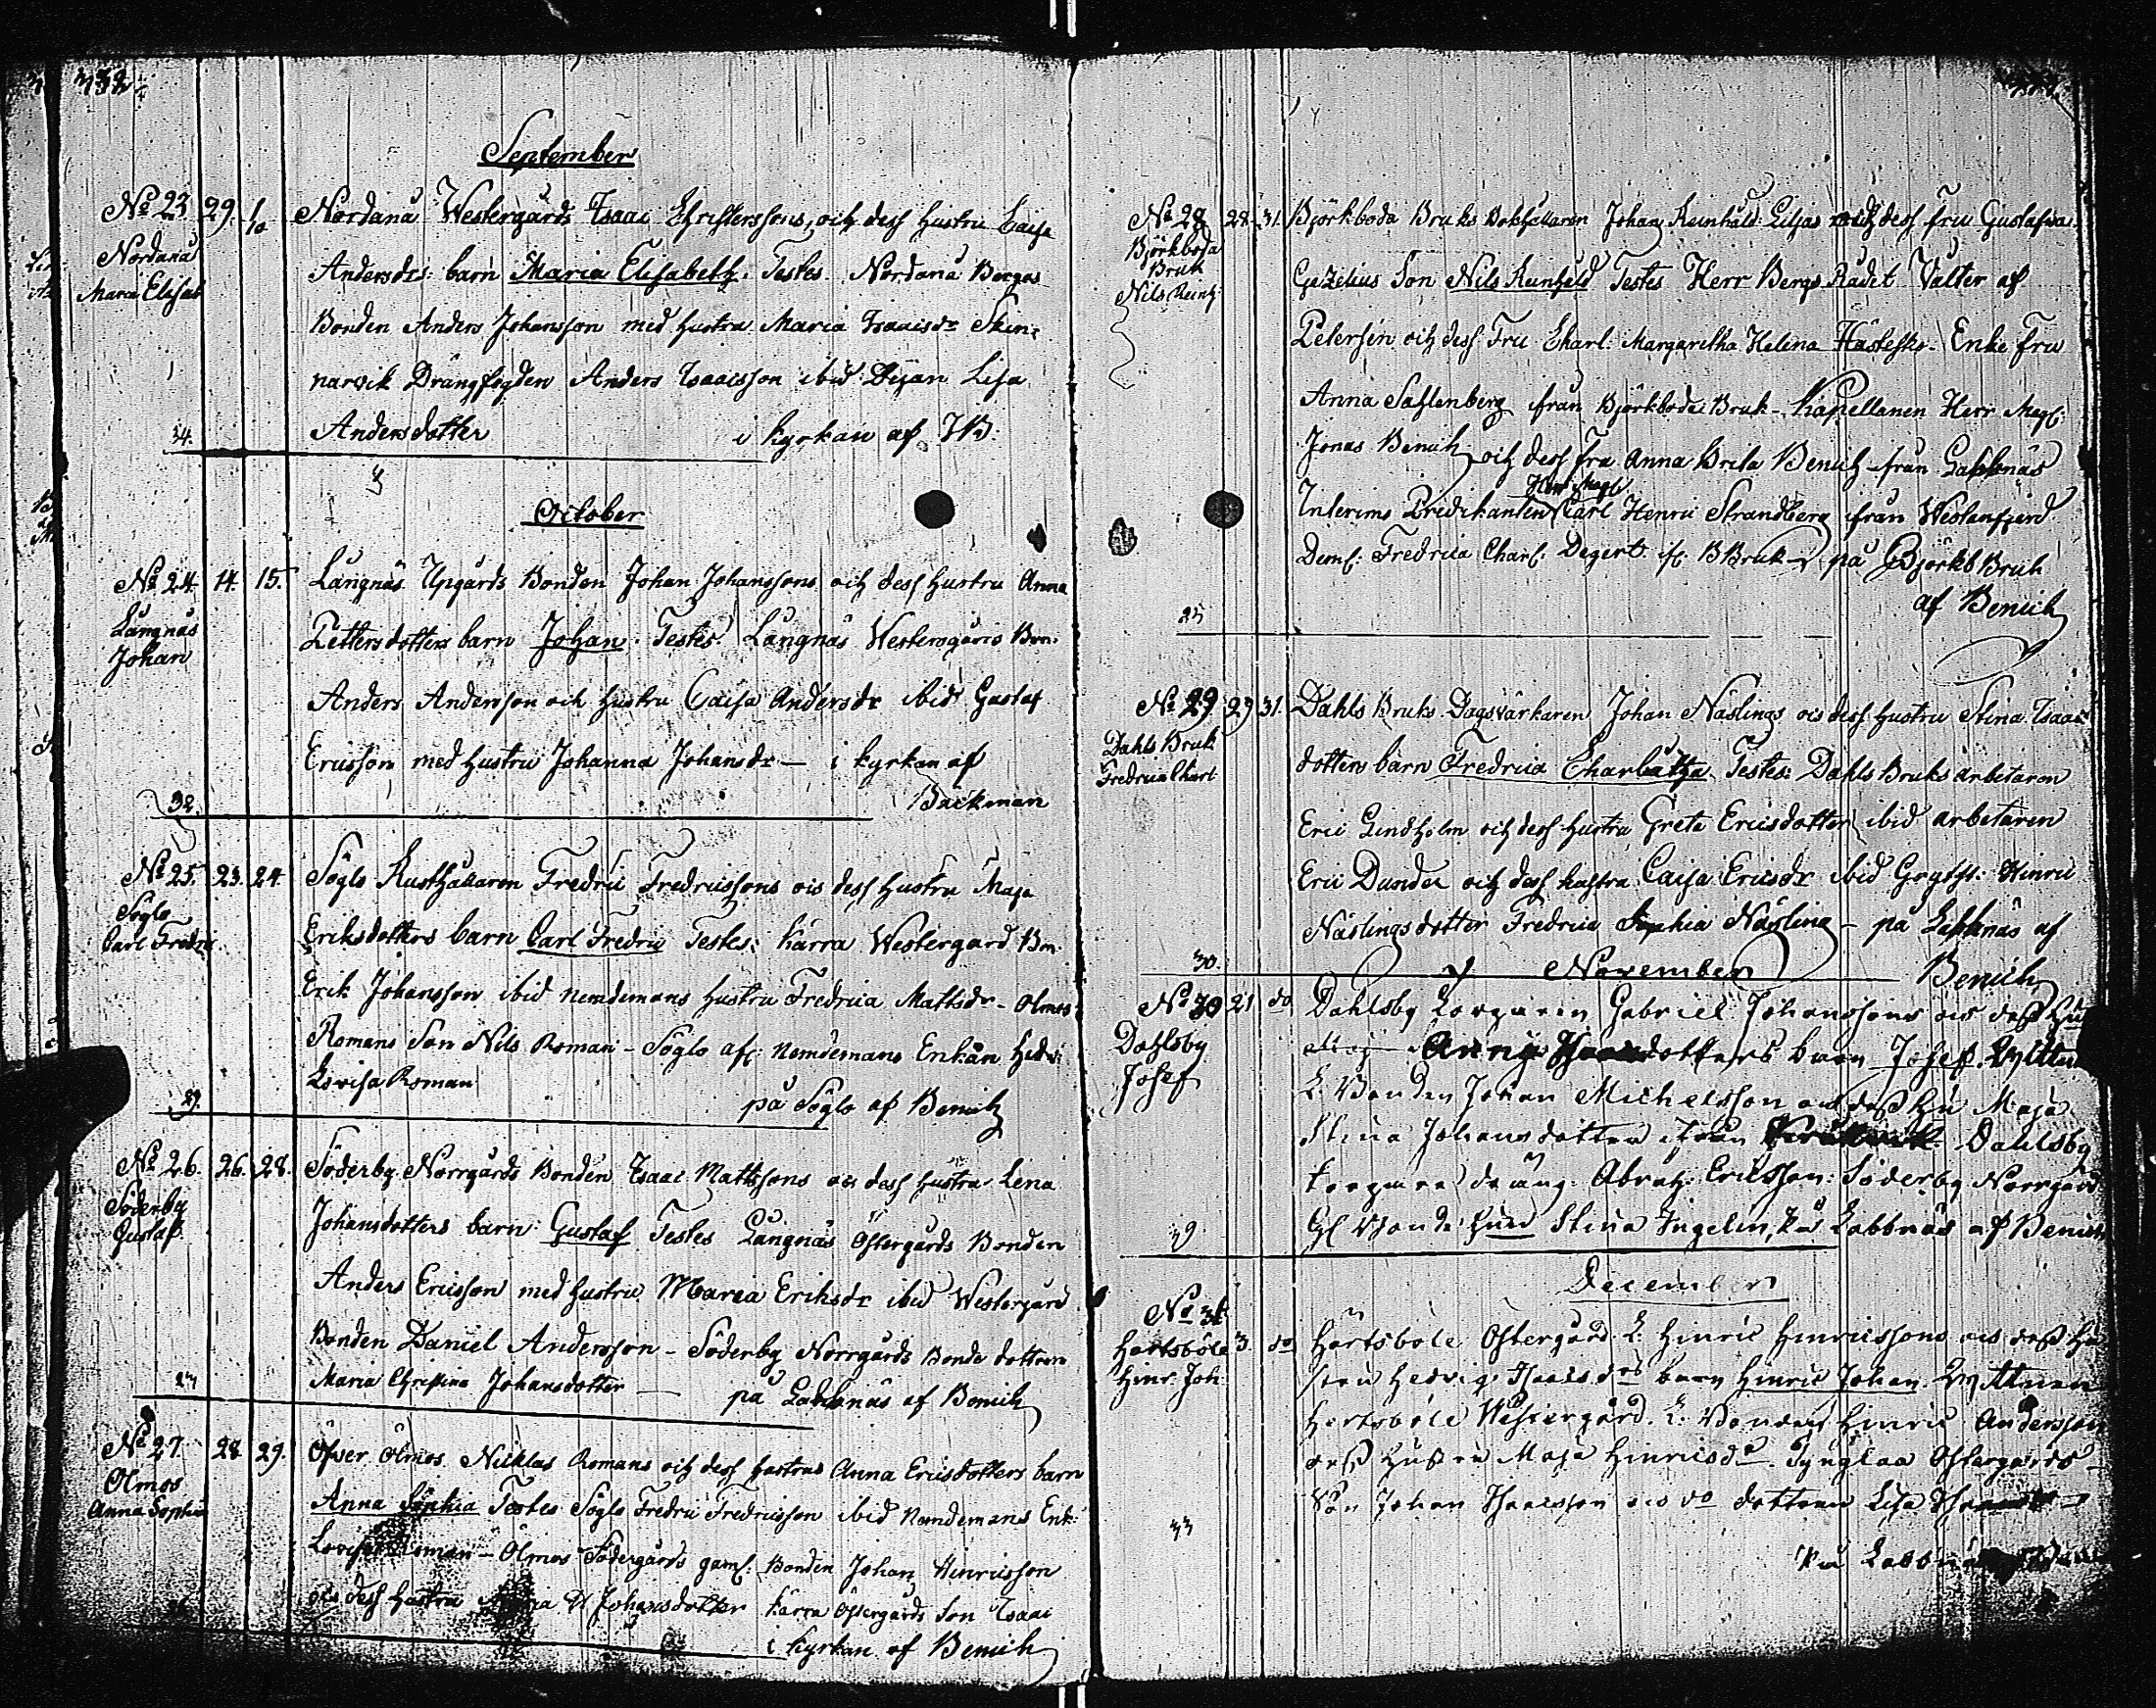 332
September
No 23 29. 1/10 Nordanå Westergårds Isaac Christerssons, och dess hustru Caisa
Nordanå
Maria Elisab
Andersdrs barn Maria Elisabeth. Testes Nordanå Bergas
Bonden Anders Johansson med hustru Maria Isaacsdr Skin=
narvik Drängfogden Anders Isaacsson ibid Pigan Lisa
34. Andersdotter i kyrkan af
October
No 24 14. 15. Långnäs Upgårds Bonden Johan Johanssons och dess hustru Anna
Långnäs
Johan
Pettersdotters barn Johan. Testes Långnäs Westergårds Bon.
Anders Andersson och hustru Caisa Andersdr ibid Gustaf
Ericsson med hustru Johanna Johansdr — i kyrkan af
32. Backman
No 25. 23. 24 Söglo Rusthållaren Fredric Fredricssons och dess hustru Maja
Söglo
Carl Fredric
Eriksdotters barn Carl Fredric Testes: Kärra Westergård Bon.
Erik Johansson ibid nemdemans hustru Fredrica Mattsdr - Olmos
Romans Son Nils Roman - Söglo afl: Nemdemans Enkan Hedv:
Lovisa Roman
29. på Söglo af Benich
No 26. 26. 28. Söderby Norrgårds Bonden Isaac Mattssons och dess hustru Lena
Söderby
Gustaf
Johansdotters barn: Gustaf Testes Långnäs Östergårds Bonden
Anders Ericsson med hustru Maria Eriksdr ibid Westergård
Bonden Daniel Andersson - Söderby Norrgårds Bonde dottren
27 Maria Christina Johansdotter — på Labbnäs af Benich
No 27. 28 29. Öfver Ölmos Nicklas Romans och dess hustrus Anna Ericsdotters barn
Ölmos
Anna Sophia
Anna Sophia Testes Söglo Fredric Fredricsson ibid Nemdemans Enk:
Lovisa Roman - Ölmos Södergårds gaml: Bonden Johan Hinricsson
och dess hustru Johansdotter Kärra Östergårds Son Isaac
i kyrkan af Benich
No 28 28. 31. Björkboda Bruks Bokhållaren Johan Reinhold Liljas och dess Fru Gustafva
Björkboda
Bruk
Nils Reinh:
Gazelius Son Nils Reinhold Testes Herr Bergs Rådet Valter af
Petersén och dess Fru Charl: Margaretha Helena Hästesko - Enke Fru
Anna Sahlenberg från Björkboda Bruk - Kapellanen Herr Mag:
Jonas Benich och dess Fru Anna Brita Benich från Labbnäs
Herr Mag:
Interims Predikanten Carl Henric Strandberg från Westanfjerd
Deml: Fredrica Charl: Degert B Bruk - på Björkb Bruk
25 af Benich
No 29 29 31. Dahls Bruks Dagsvärkaren Johan Näslings och dess hustru Stina Isaac
Dahls Bruk
Fredrica Charl
dotters barn Fredrica Charlotta Testes: Dahls Bruks arbetaren
Eric Lindholm och dess hustru Greta Ericsdotter ibid arbetaren
Eric Dunder och dess hustru Caisa Ericsdr ibid Hinric
Näslings dotter Fredrica Sophia Näsling - på Labbnäs af
30. November Benich
No 30 21 do Dahlsby Torparen Gabriel Johanssons och dess Hu
Dahlsby
Josef
Anna dotters barn Josef. Wittnen
L: Bonden Johan Michelsson och dess Hu Maja
Stina Johansdotter ifrån Dahlsby
torpare dräng Abrah: Eriksson: Söderby Norrgård
39 Stina Ingelin, på Labbnäs af Benich
December
No 31 3. do Hertsböle Östergård L: Hinric Hinricssons och dess Hu
Hertsböle
Hinr: Joh:
stru Hedvig Isaacsdrs barn Hinric Johan. Wittnen
Hertsböle Westergård L: Bonden Hinric Andersson
dess Hustru Maja Hinricsdr. Tynglax Östergårds
33 Son Johan Isaacsson och do dottren Lisa
på Labbnäs